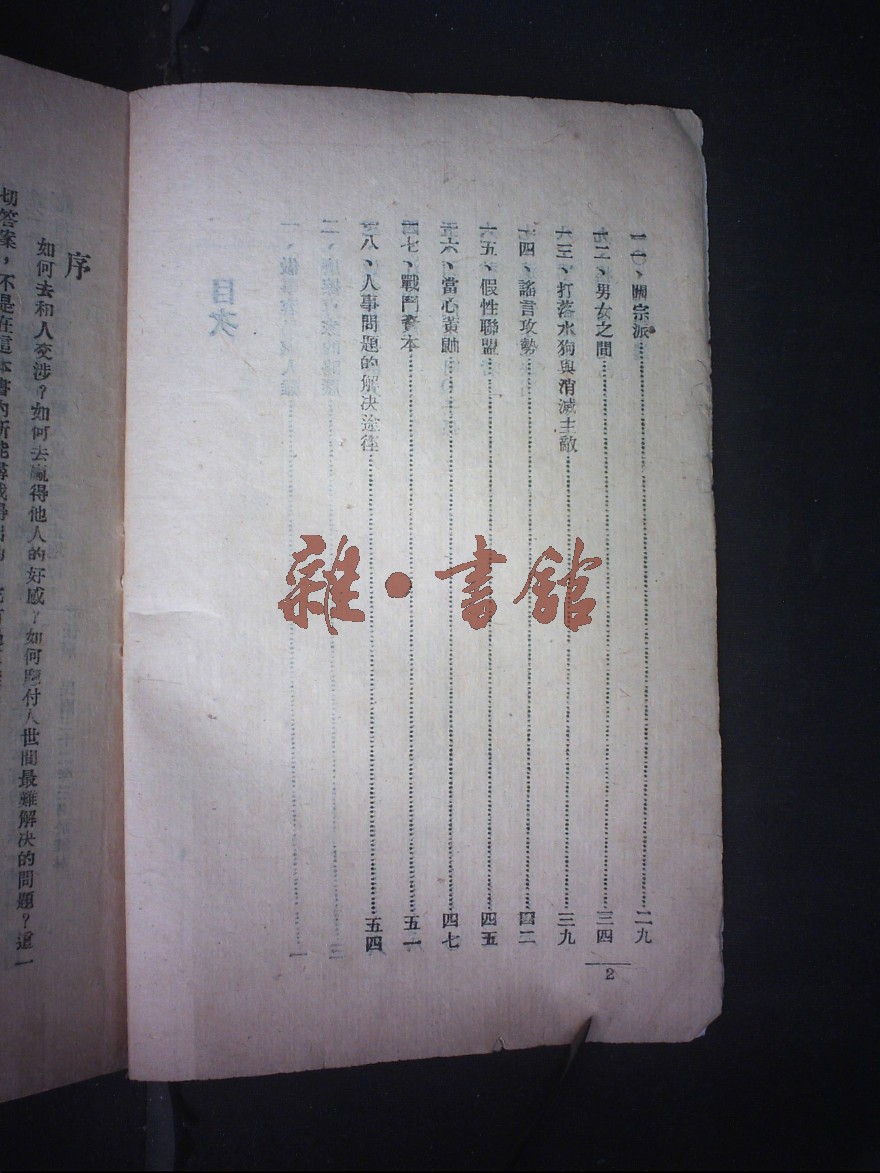 宗派……二九
一二、男女之間……三四
一三、打落水狗與消滅主敵……三九
一四、謠言攻勢……四二
一五、假性聯盟……四五
一六、當心黃鼬……四七
一七、戰鬥資本……五一
一八、人事問題的解決途徑……五四
二、……三
一、……一
目次
2
序
如何去和人交涉？如何去贏得他人的好感？如何應付人世間最難解決的問題？這一
切答案，不是在這本書內所能尋找得出的
雜·書館